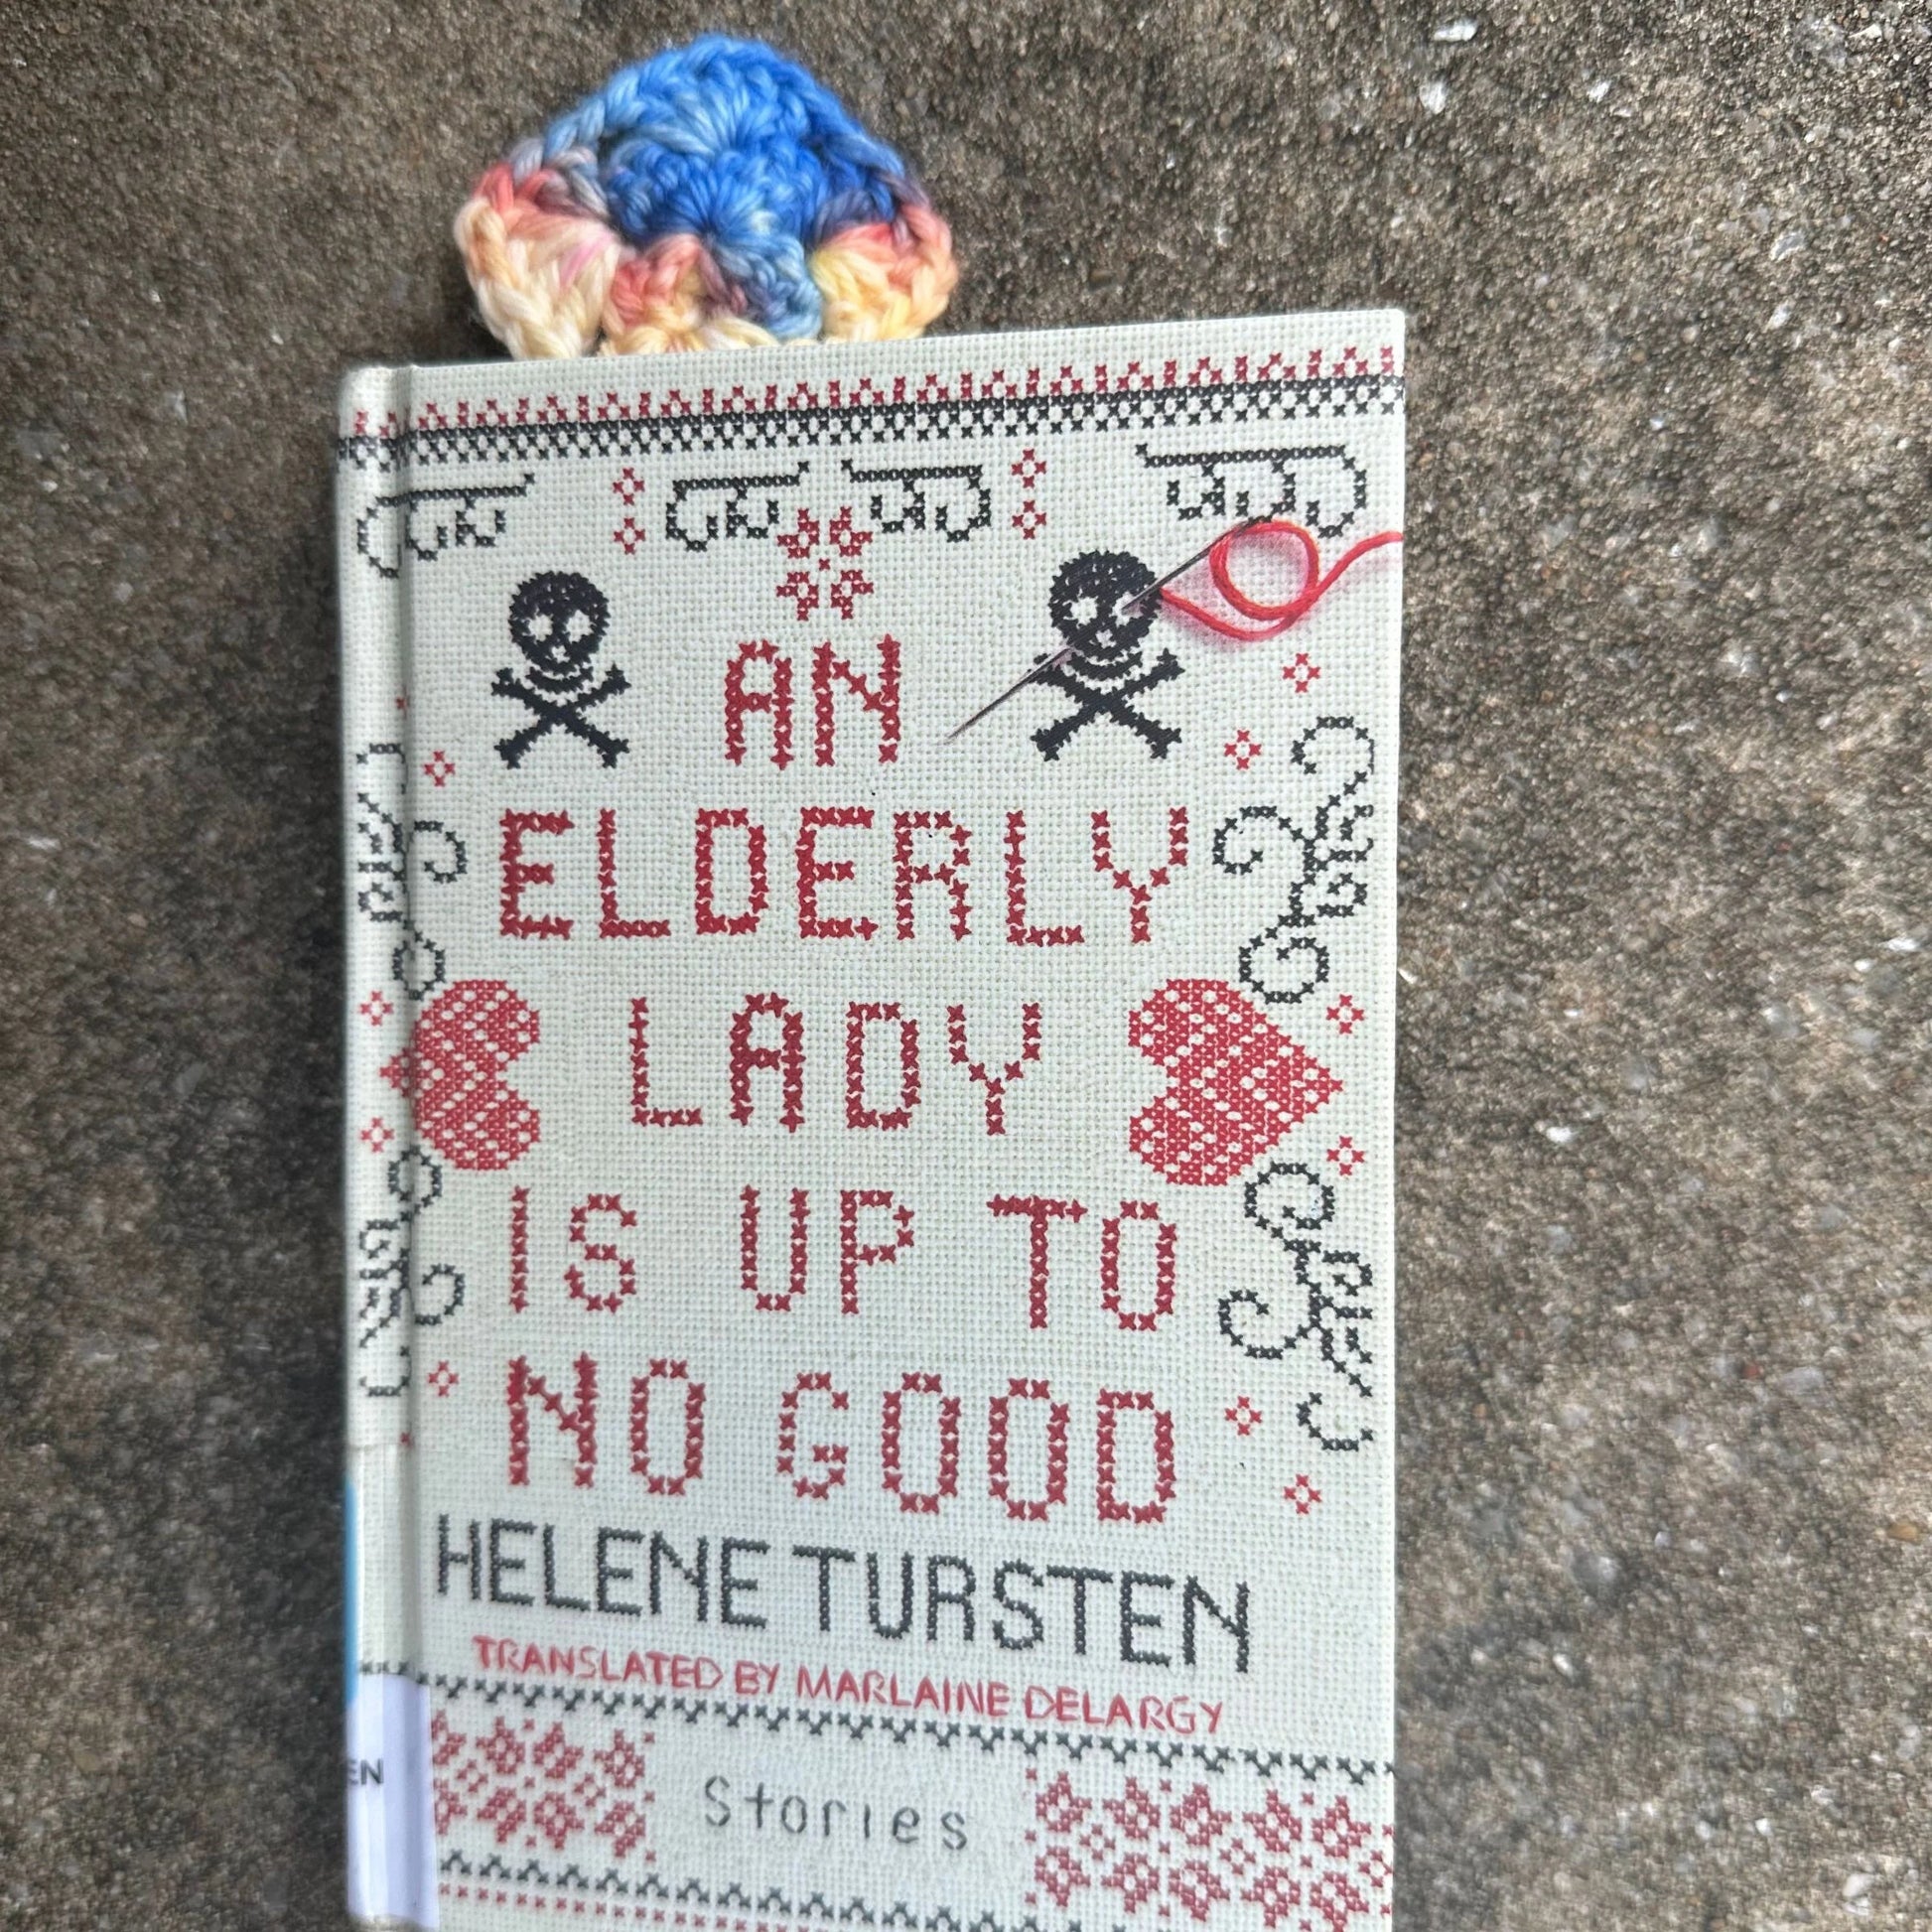 AN
ELDERLY
LADY
IS UP TO
NO GOOD
HELENE TURSTEN
TRANSLATED BY MARLAINE DELARGY
Stories
EN